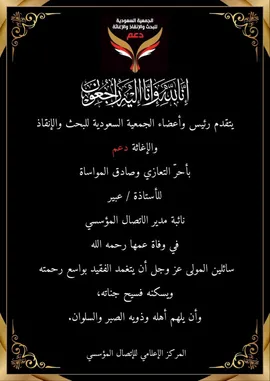 الجمعية السعودية
للبحث والإنقاذ والإغاثة
دعم
إنا لله وإنا إليه راجعون
يتقدم رئيس وأعضاء الجمعية السعودية للبحث والإنقاذ
والإغاثة دعم
بأحرّ التعازي وصادق المواساة
للأستاذة / عبير
نائبة مدير الاتصال المؤسسي
في وفاة عمها رحمه الله
سائلين المولى عز وجل أن يتغمد الفقيد بواسع رحمته
ويسكنه فسيح جناته،
وأن يلهم أهله وذويه الصبر والسلوان.
المركز الإعلامي للإتصال المؤسسي